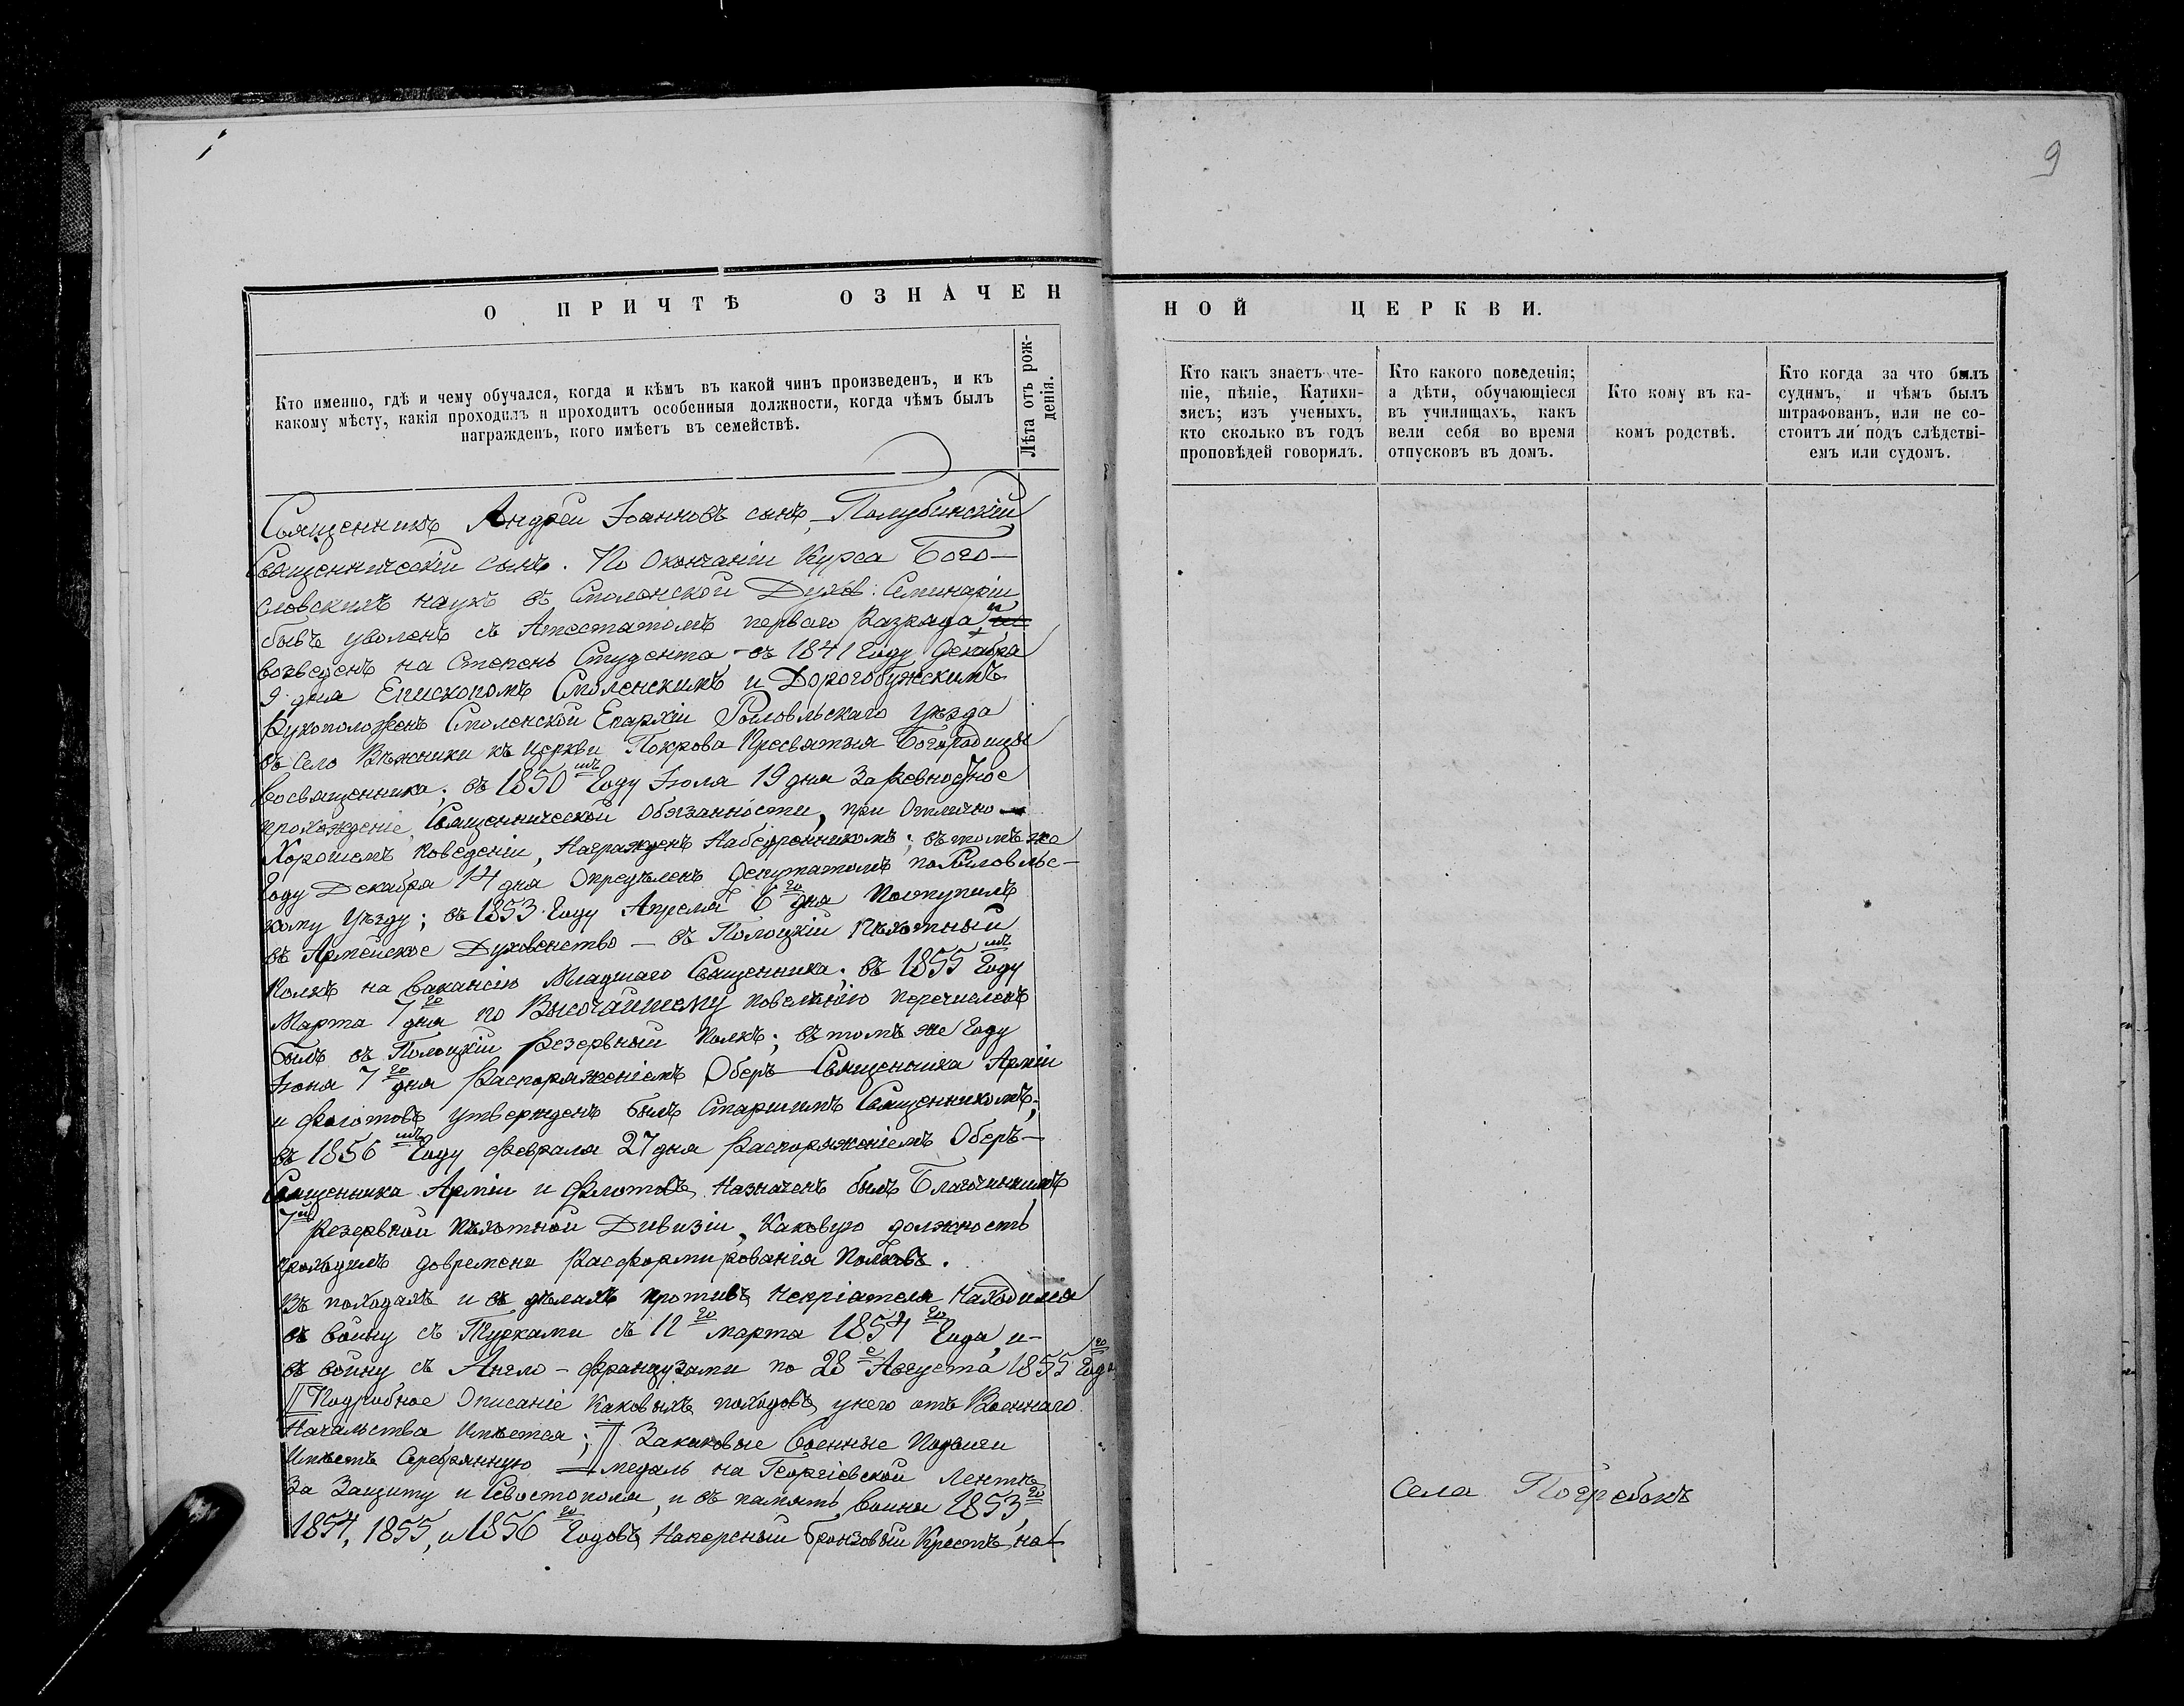 9
О ПРИЧТѢ ОЗНАЧЕН
НОЙ ЦЕРКВИ.
Кто именно, гдѣ и чему обучался, когда и кѣмъ въ какой чинъ произведенъ, и къ
какому мѣсту, какія проходилъ и проходитъ особенныя должности, когда чѣмъ былъ
награжденъ, кого имѣетъ въ семействѣ.
Лѣта отъ рож-
денія.
Кто какъ знаетъ чте-
ніе, пѣніе, Катихи-
зисъ; изъ ученыхъ,
кто сколько въ годъ
проповѣдей говорилъ.
Кто какого поведенія;
а дѣти, обучающіеся
въ училищахъ, какъ
вели себя во время
отпусковъ въ домъ.
Кто кому въ ка-
комъ родствѣ.
Кто когда за что былъ
судимъ, и чѣмъ былъ
штрафованъ, или не со-
стоитъ ли подъ слѣдстві-
емъ или судомъ.
Священникъ Андрей Іоанновъ сынъ, Полубинскій
Священническій сынъ. По Окончаніи Курса Бого-
словскихъ наукъ въ Смоленской Духов: Семинаріи
бывъ уволенъ съ Атестатомъ перваго Разряда, и
возведенъ на Степень Студента, - въ 1841 Году Декабря
9 дня Епископомъ Смоленскимъ и Дорогобужскимъ
Рукоположенъ Смоленской Епархіи Рословльскаго Уѣзда
въ Село Вѣжники къ церкви Покрова Пресвятыя Богородицы
во священника; въ 1850мъ Году Іюля 19 дня За Ревностное
прохожденіе Священнической Обязанности, при Отлично -
Хорошемъ поведеніи, Награжденъ Набедренникомъ; въ томъ же
Году Декабря 14 дня Опредѣленъ Депутатомъ по Рословльс-
кому Уѣзду; въ 1853 Году Апреля 6го дня Поступилъ
въ Армейское Духовенство — въ Полоцкій Пѣхотный
Полкъ на вакансію Младшаго Священника. въ 1855мъ Году
Марта 7го дня по Высочайшему повелѣнію перечисленъ
былъ въ Полоцкій Резервный Полкъ; въ томъ же Году
Іюня 7го дня Распоряженіемъ Оберъ-Священника Арміи
и Флотовъ утвержденъ былъ Старшимъ Священникомъ;
въ 1856мъ Году Февраля 27 дня Распоряженіемъ Оберъ-
Священника Арміи и Флотовъ, Назначенъ былъ Благочиннымъ
7й Резервной Пѣхотной Дивизіи, Каковую должность
проходилъ довремени Расформированія Полковъ.
Въ походахъ и въ дѣлахъ противъ Непріателя Находился
въ войну съ Турками съ 12го марта 1854го Года, и-
въ войну съ Англо - Французами по 28е Августа 1855го Года
Подробное Описаніе Каковыхъ походовъ унего отъ Военнаго
Начальства Имѣется; Закаковые военные Подвиги
Имѣетъ Серебряную медаль на Георгіевской Лентѣ
За Защиту и Севостополя, и въ память войны 1853го,
1854, 1855, и 1856го Годовъ, Наперсный бронзовый Крестъ, на
Села Погребокъ